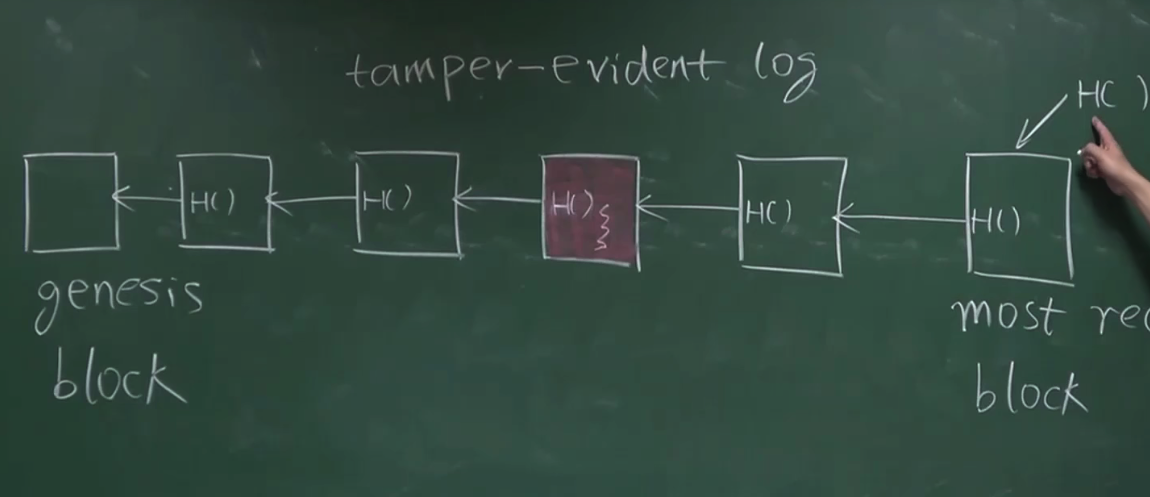 tamper-evident log
H( )
H()
H()
H()
H()
H()
genesis
block
most rec
block